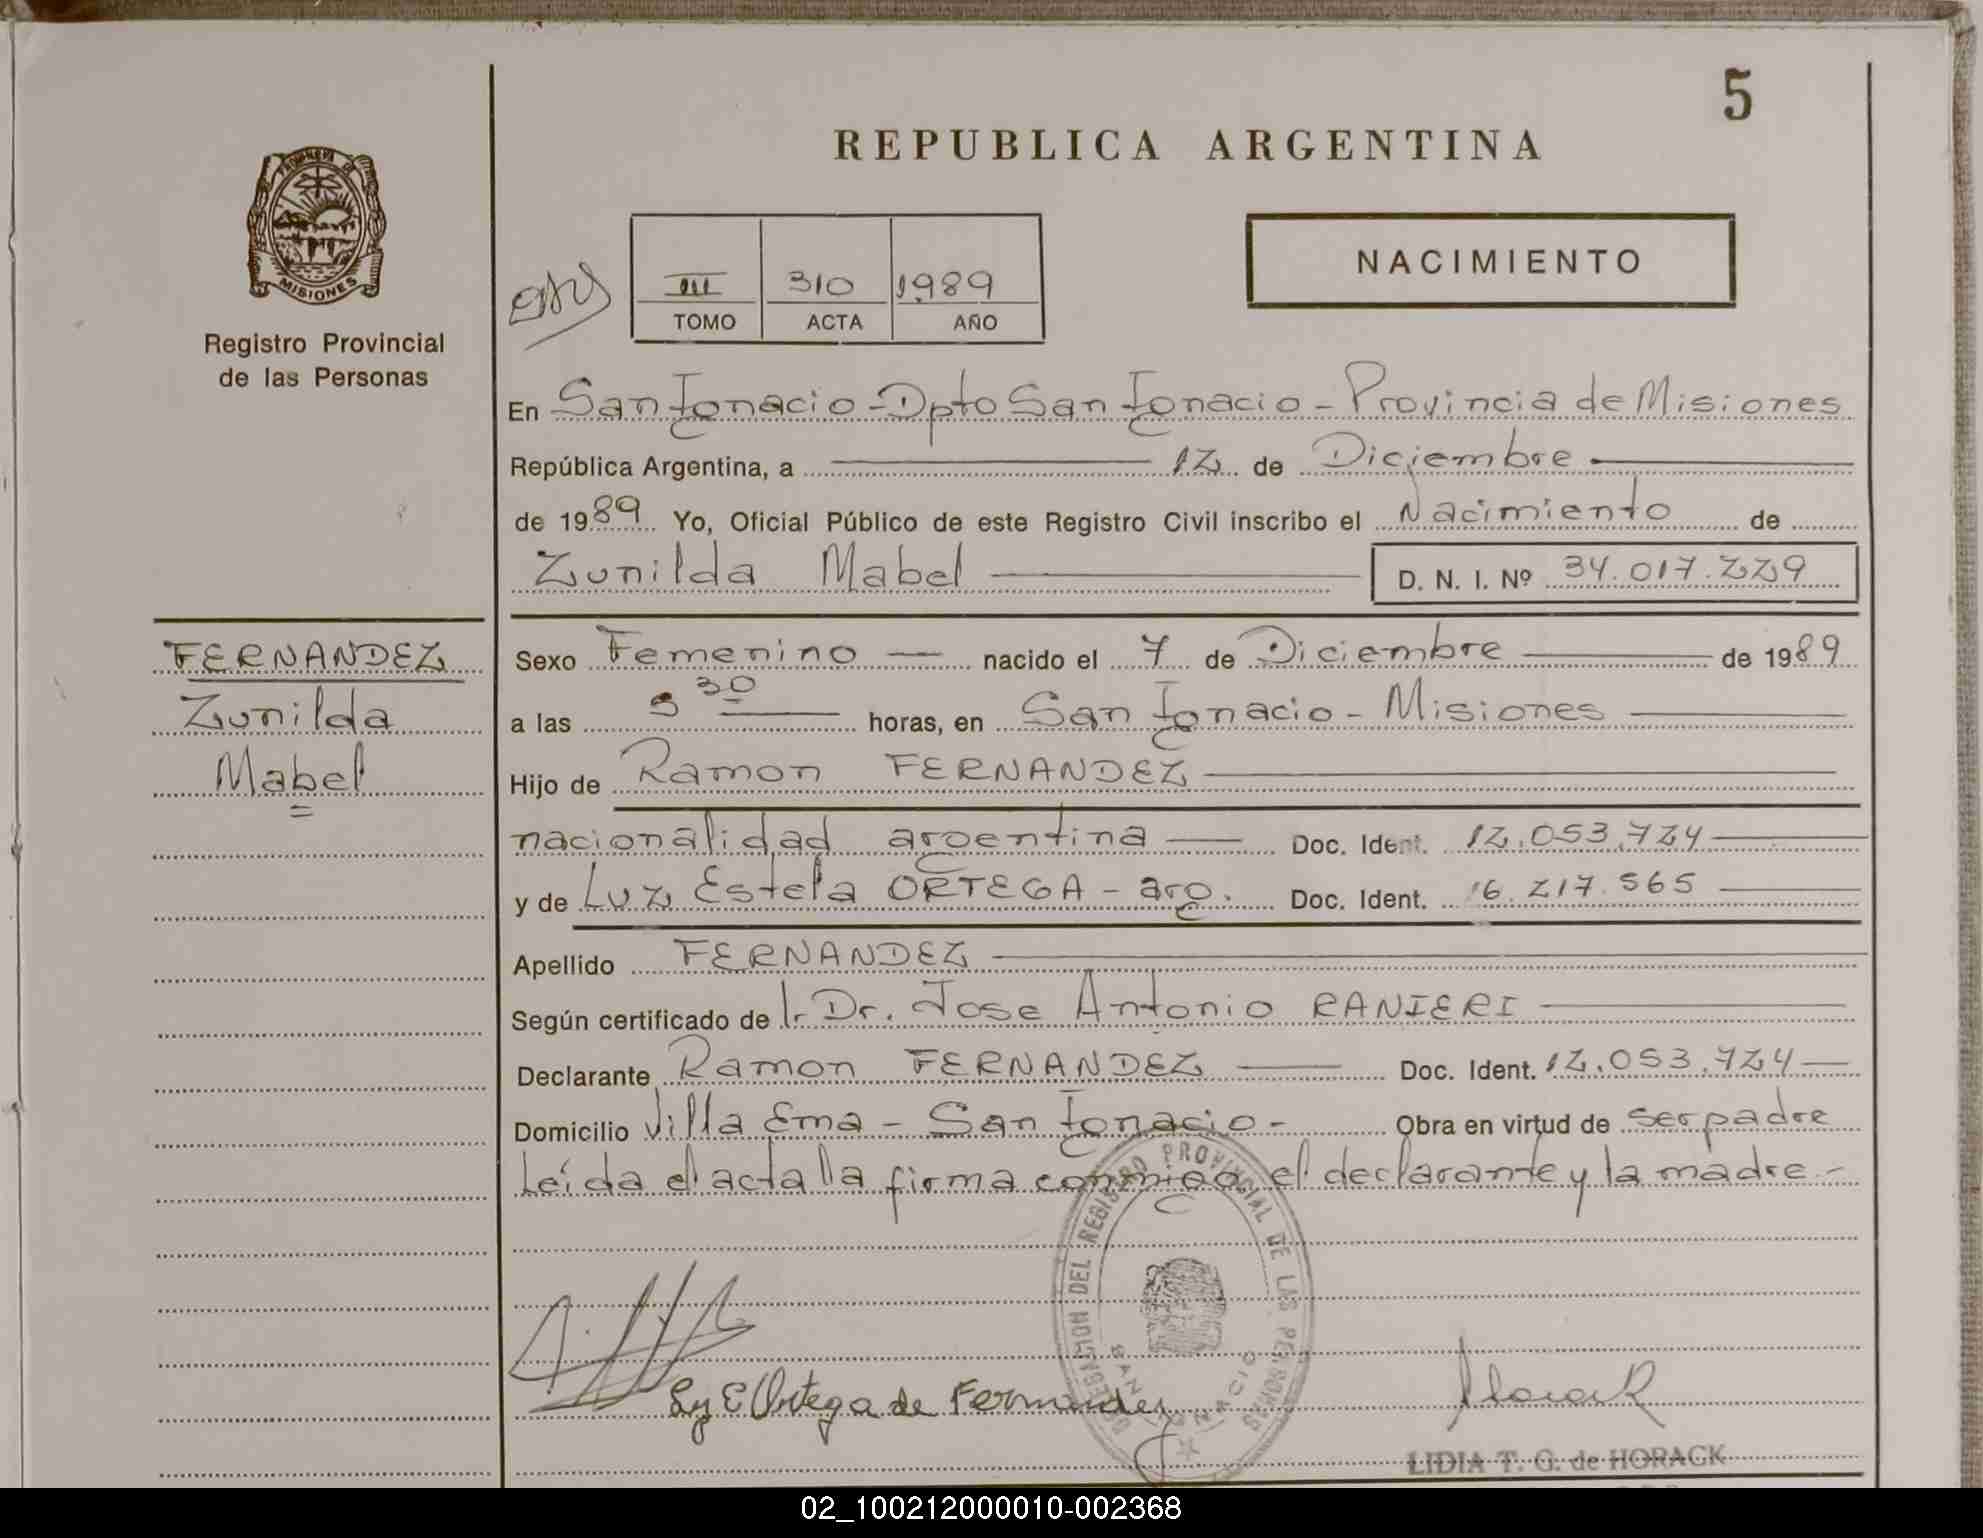 5
REPUBLICA ARGENTINA
PROVINCIA DE
MISIONES
Registro Provincial
de las Personas
NACIMIENTO
III 310 1989
TOMO ACTA AÑO
En San Ignacio - Dpto San Ignacio - Provincia de Misiones
República Argentina, a 12 de Diciembre
de 1989 Yo, Oficial Público de este Registro Civil inscribo el Nacimiento de
Zunilda Mabel D. N. I. Nº 34.017.229
FERNANDEZ
Zunilda
Mabel
Sexo Femenino nacido el 7 de Diciembre de 1989
a las 5 30 horas, en San Ignacio - Misiones
Hijo de Ramon FERNANDEZ
nacionalidad argentina Doc. Ident. 12.053.724
y de Luz Estela ORTEGA - arg. Doc. Ident. 16.217.565
Apellido FERNANDEZ
Según certificado de l. Dr. Jose Antonio RANIERI
Declarante Ramon FERNANDEZ Doc. Ident. 12.053.724
Domicilio Villa Ema - San Ignacio - Obra en virtud de ser padre
Leída el acta la firma conmigo el declarante y la madre -
DELEGACION DEL REGISTRO PROVINCIAL DE LAS PERSONAS
SAN IGNACIO
E Ortega de Fernandez
Horack
LIDIA T. G. de HORACK
02_100212000010-002368